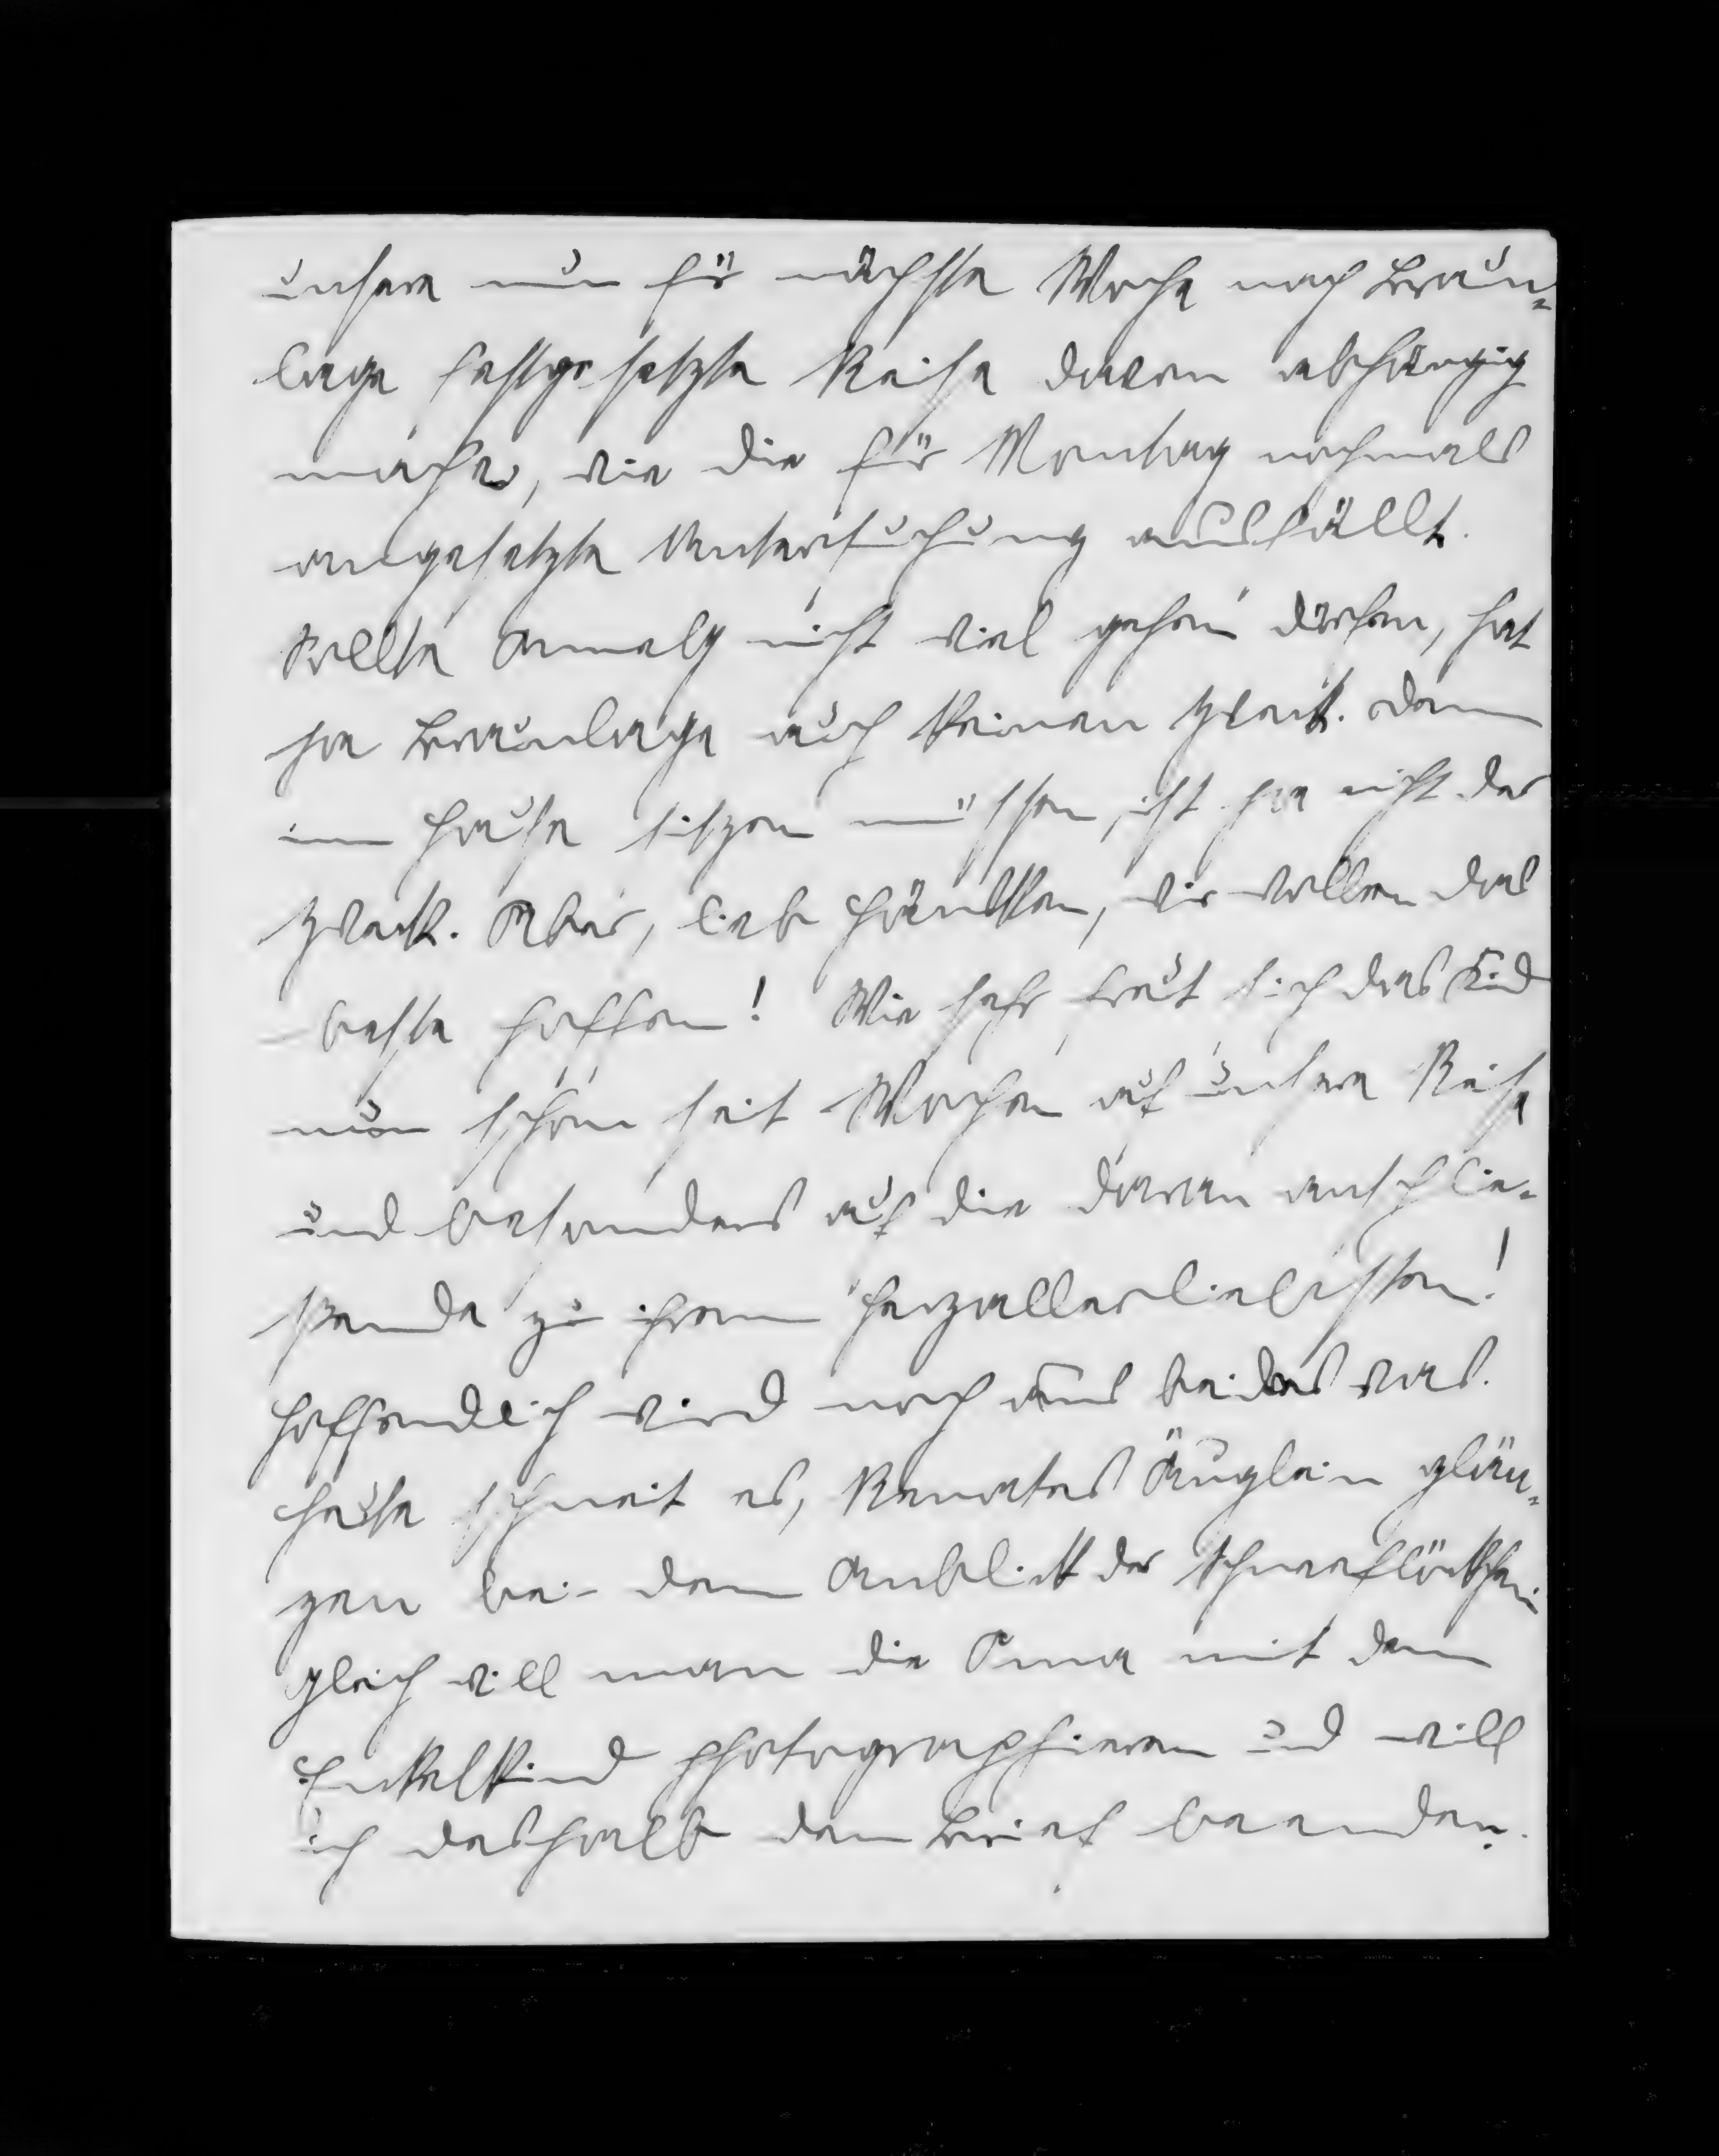 unsere nun für nächste Woche nach Braun-
lage festgesetzte Reise davon abhängig
machen, wie die für Montag nochmals
angesetzte Untersuchung ausfällt.
Sollte Annely nicht viel gehen dürfen, hat
ja Braunlage auch keinen Zweck. Denn
im Hause sitzen müssen, ist ja nicht der
Zweck. Aber, lieb Hänschen, wir wollen das
beste hoffen! Wie sehr freut sich das Kind
nun schon seit Wochen auf unsere Reise
und besonders auf die daran anschlie-
ßende zu ihrem Herzallerliebsten!
Hoffendlich wird noch aus beides was.
Heute schneit es, Renates Äuglein glän-
zen bei dem Anblick der Schneeflöckchen
gleich will man die Oma mit dem
Enkelkind photographieren und will
ich deshalb den Brief beenden.